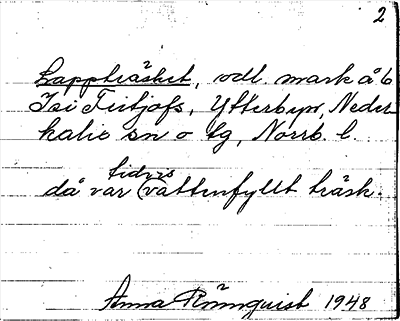 2
Lappträsket, odl. mark å 6
Isi Fritjofs, Ytterbyn, Neder-
kalix sn o tg, Norrb. l.
tidvis
då var vattenfyllt träsk.
Anna Rönnquist 1948